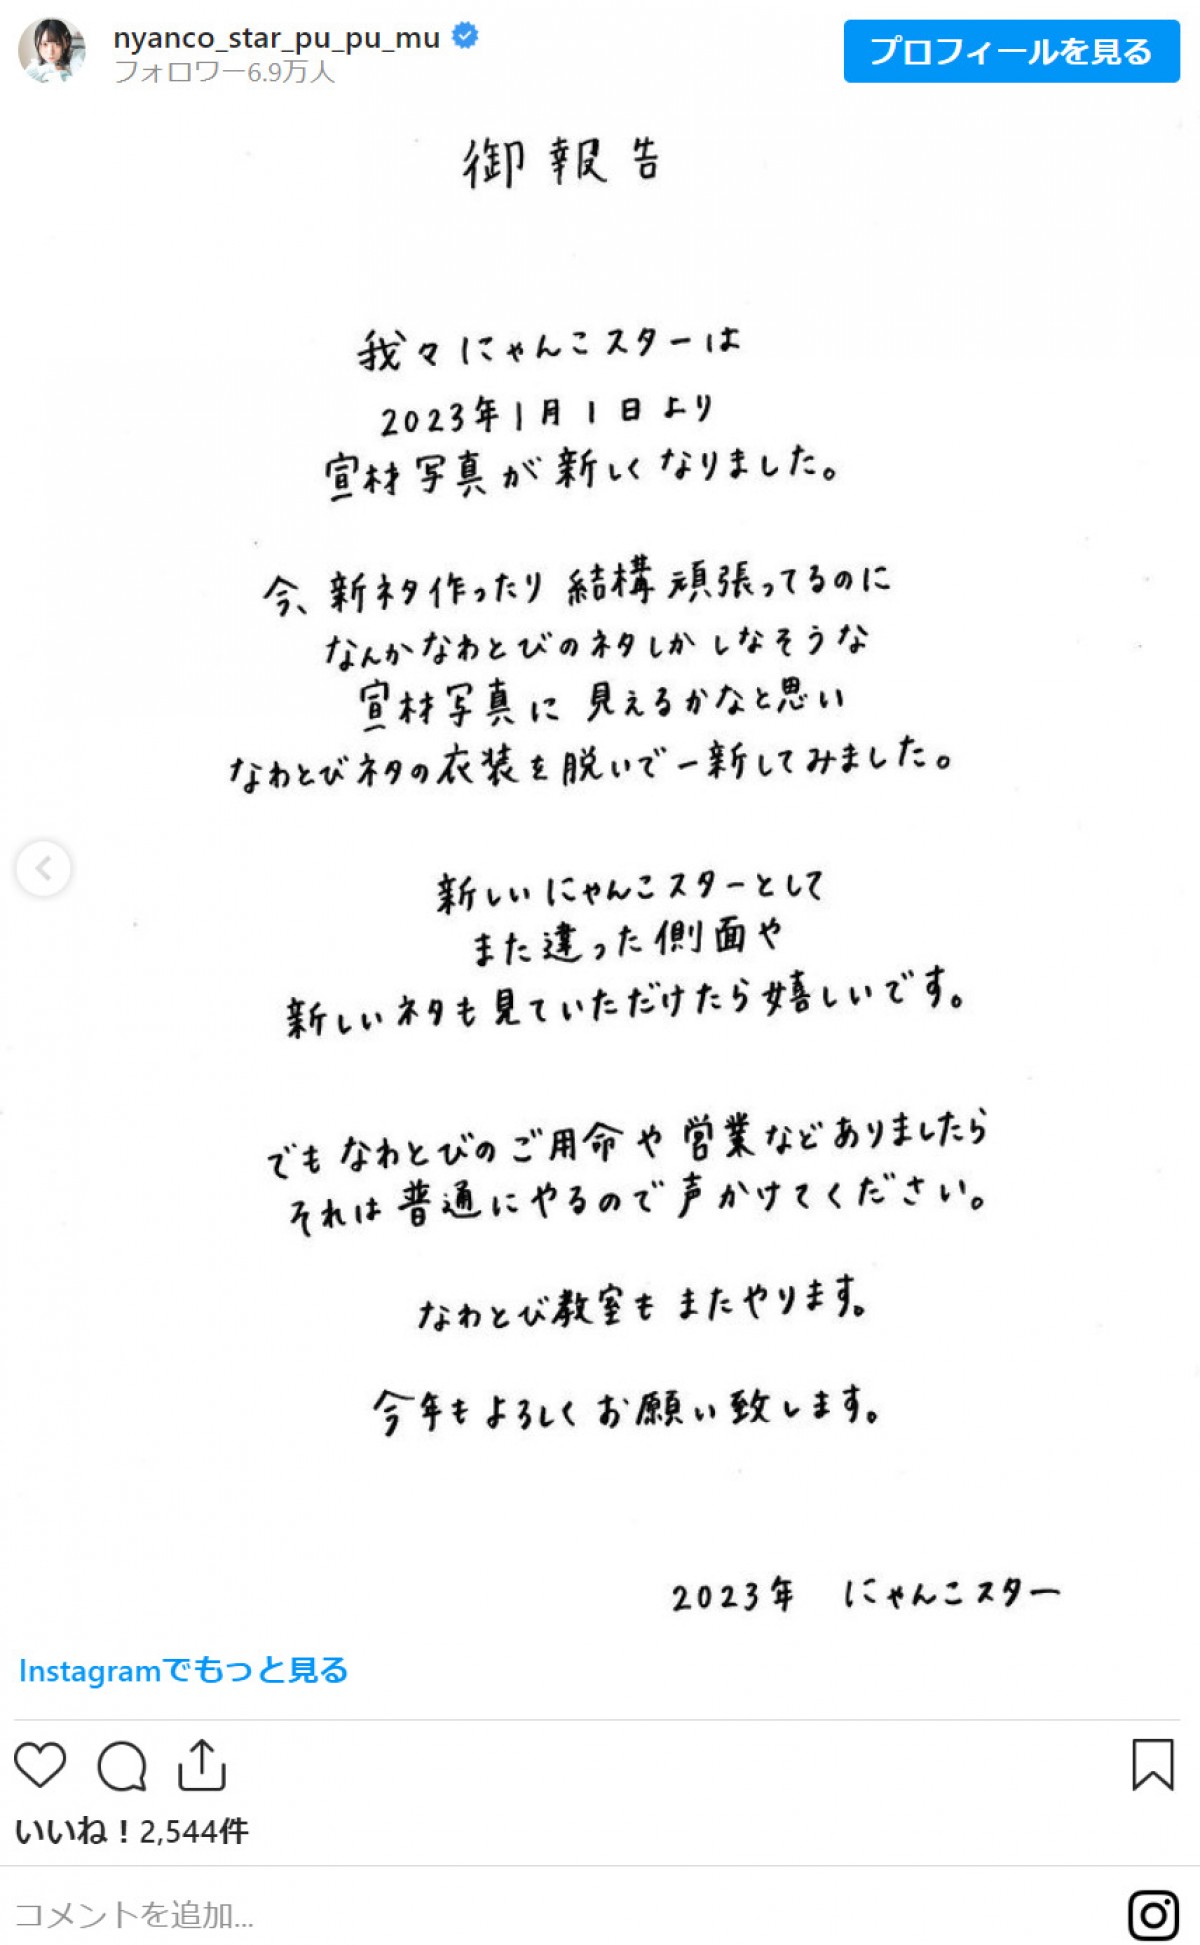 nyanco_star_pu_pu_mu
フォロワー6.9万人
プロフィールを見る
御報告
我々にゃんこスターは
2023年1月1日より
宣材写真が新しくなりました。
今、新ネタ作ったり結構頑張ってるのに
なんかなわとびのネタしかしなそうな
宣材写真に見えるかなと思い
なわとびネタの衣装を脱いで一新してみました。
新しいにゃんこスターとして
また違った側面や
新しいネタも見ていただけたら嬉しいです。
でもなわとびのご用命や営業などありましたら
それは普通にやるので声かけてください。
なわとび教室もまたやります。
今年もよろしくお願い致します。
2023年 にゃんこスター
Instagramでもっと見る
いいね！2,544件
コメントを追加...